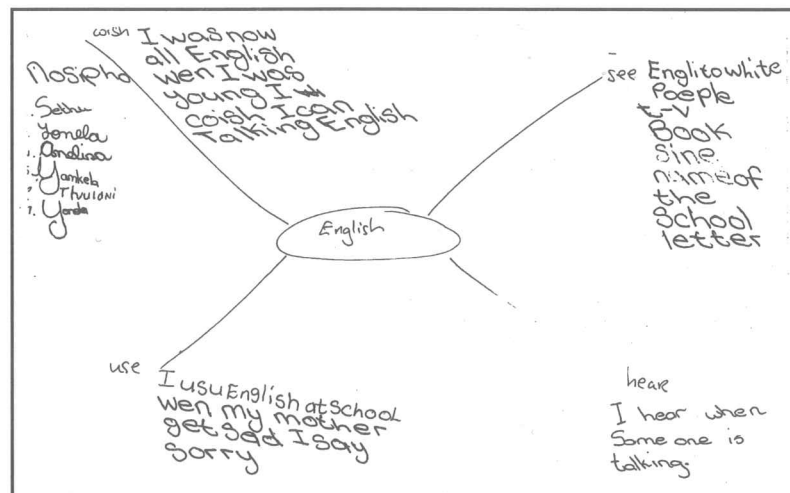 coish I was now
all English
wen I was
young I
coish I can
Talking English
Nosipho
Sethu
Yonela
Andina
Yamkela
Yonda
see Engli to white
Poeple
t-v
Book
Sine
name of
the
School
letter
English
use I usu English at school
wen my mother
get sad I say
sorry
heare
I hear when
Some one is
talking.